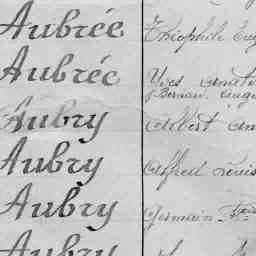 Aubrée Théophile Eug
Aubrée Yves
Bernard. Augu
Aubry Albert
Aubry Alfred Louis
Aubry Germain
Aubry